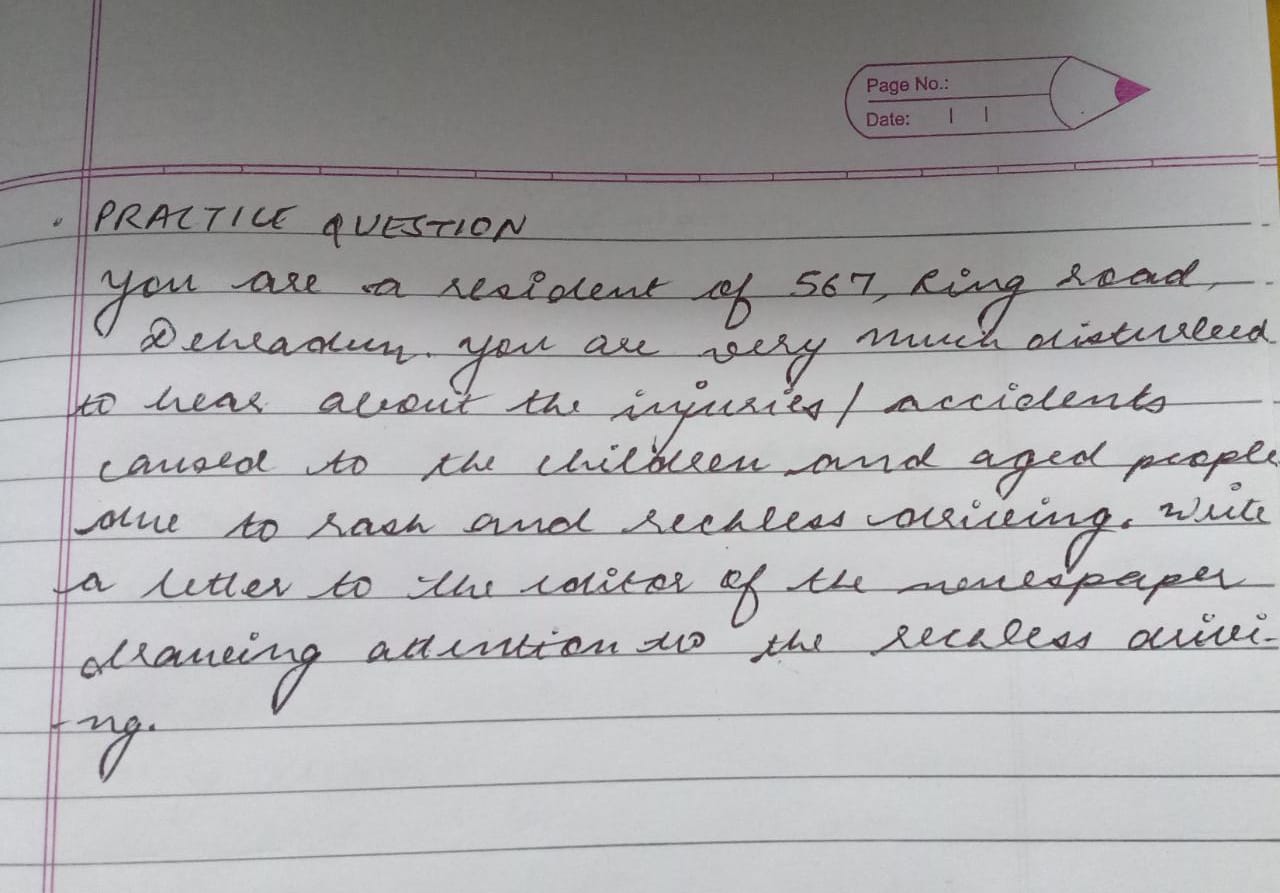 Page No.:
Date: | |
. PRACTICE QUESTION
You are a resident of 567, Ring road,
Dehradun. You are very much disturbed
to hear about the injuries/ accidents
caused to the children and aged people
due to rash and reckless driving. Write
a letter to the editor of the newspaper
drawing attention to the reckless drivi-
-ng.